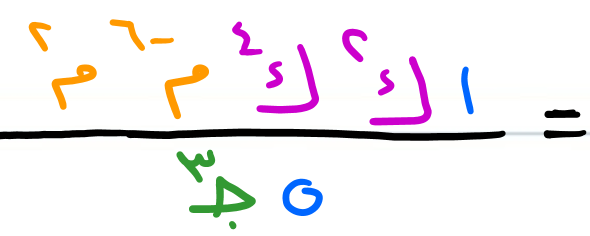 = ١ ك^٢ ك^٤ م^-٦ م^٢
٥ جـ^٣